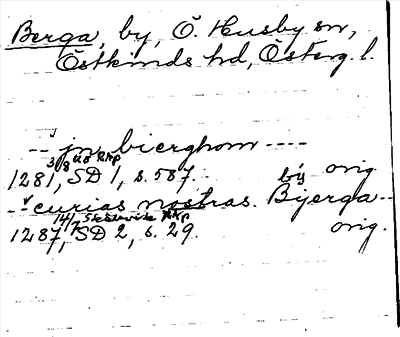 Berga, by, Ö. Husby sn,
Östkinds hd, Österg. l.
-- jn bierghom ----
3/8 uo Rkp
1281, SD 1, s. 587. orig
by
-- curias nostras. Bijerga --
14/7 Skänninge Rkp
1287, SD 2, s. 29. orig.